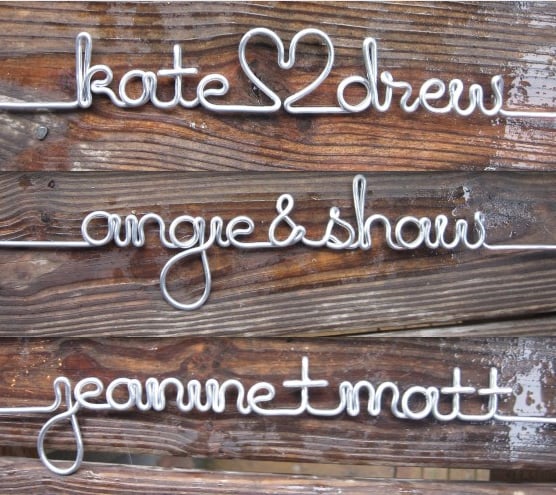 kate ♡ drew
angie & shaw
jeanine + matt